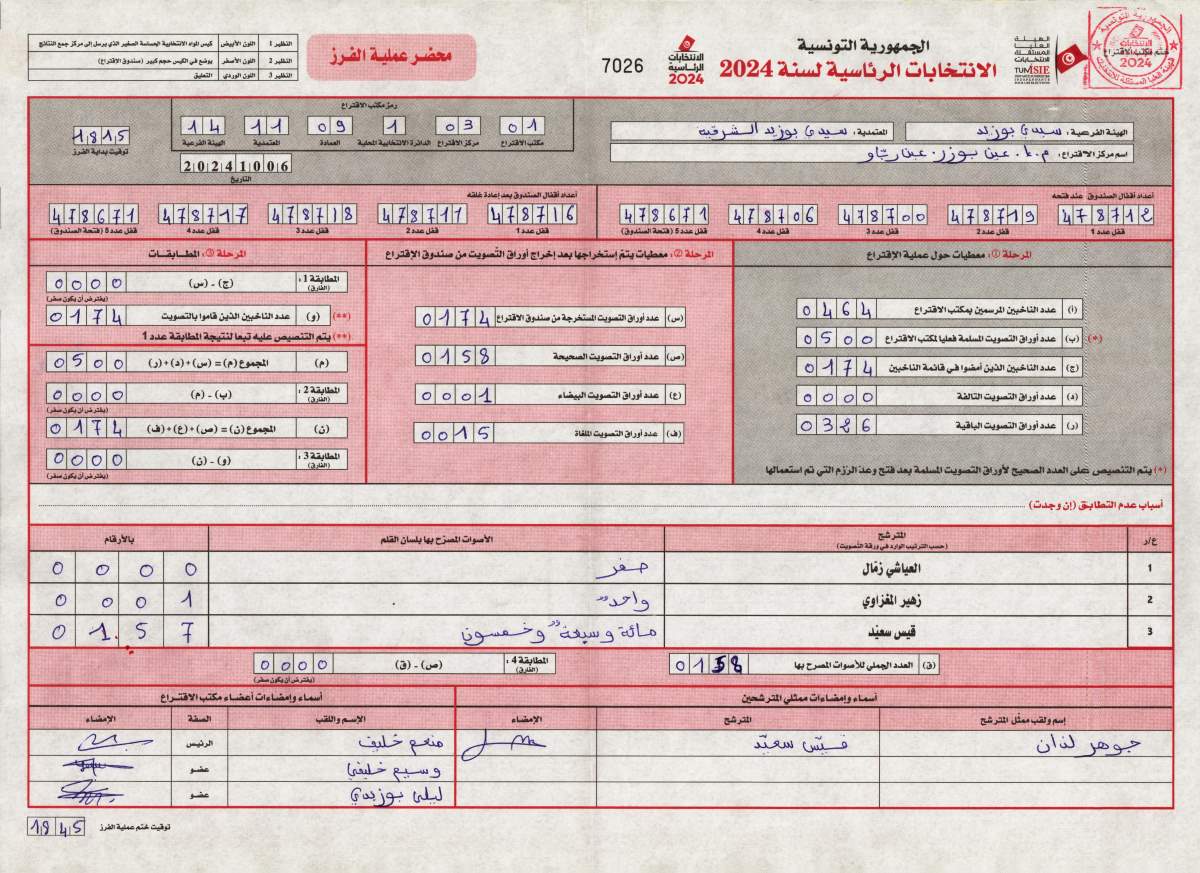 الجمهورية التونسية
الانتخابات الرئاسية لسنة 2024
الهيئة العليا المستقلة للانتخابات
TUNISIE
الانتخابات الرئاسية 2024
7026
محضر عملية الفرز
النظير 1 اللون الأبيض كيس المواد الانتخابية الحساسة الصغير الذي يرسل إلى مركز جمع النتائج
النظير 2 اللون الأصفر يوضع في الكيس حجم كبير (صندوق الإقتراع)
النظير 3 اللون الوردي التعليق
الجمهورية التونسية
ختم مكتب الاقتراع
الانتخابات الرئاسية 2024
الهيئة الفرعية: سيدي بوزيد
المعتمدية: سيدي بوزيد الشرقية
اسم مركز الاقتراع: م.ا. عين بوزر. عين ريّاو
رمز مكتب الاقتراع
01 03 1 09 11 14
مكتب الاقتراع مركز الاقتراع الدائرة الانتخابية المحلية العمادة المعتمدية الهيئة الفرعية
20241006
التاريخ
1815
توقيت بداية الفرز
أعداد أقفال الصندوق عند فتحه
478712 478719 478700 478706 478671
قفل عدد 1 قفل عدد 2 قفل عدد 3 قفل عدد 4 قفل عدد 5 (فتحة الصندوق)
أعداد أقفال الصندوق بعد إعادة غلقه
478716 478711 478718 478717 478671
قفل عدد 1 قفل عدد 2 قفل عدد 3 قفل عدد 4 قفل عدد 5 (فتحة الصندوق)
المرحلة ①: معطيات حول عملية الإقتراع
(أ) عدد الناخبين المرسمين بمكتب الاقتراع 0464
(*) (ب) عدد أوراق التصويت المسلمة فعليا لمكتب الاقتراع 0500
(ج) عدد الناخبين الذين أمضوا في قائمة الناخبين 0174
(د) عدد أوراق التصويت التالفة 0000
(ر) عدد أوراق التصويت الباقية 0326
(*) يتم التنصيص على العدد الصحيح لأوراق التصويت المسلمة بعد فتح وعدّ الرّزم التي تم استعمالها
المرحلة ②: معطيات يتمّ إستخراجها بعد إخراج أوراق التّصويت من صندوق الإقتراع
(س) عدد أوراق التصويت المستخرجة من صندوق الاقتراع 0174
(ص) عدد أوراق التصويت الصحيحة 0158
(ع) عدد أوراق التصويت البيضاء 0001
(ف) عدد أوراق التصويت الملغاة 0015
المرحلة ③: المطابقات
المطابقة 1: (الفارق) (ج) - (س) 0000
(يفترض أن يكون صفر)
(**) (و) عدد الناخبين الذين قاموا بالتصويت 0174
(**) يتم التنصيص عليه تبعا لنتيجة المطابقة عدد 1
(م) المجموع (م) = (س)+(د)+(ر) 0500
المطابقة 2: (الفارق) (ب) - (م) 0000
(يفترض أن يكون صفر)
(ن) المجموع (ن) = (ص)+(ع)+(ف) 0174
المطابقة 3: (الفارق) (و) - (ن) 0000
(يفترض أن يكون صفر)
أسباب عدم التطابق (إن وجدت)
ع/ر المترشح الأصوات المصرّح بها بلسان القلم بالأرقام
(حسب الترتيب الوارد في ورقة التّصويت)
1 العياشي زمّال صفر 0000
2 زهير المغزاوي واحد 0001
3 قيس سعيّد مائة وسبعة وخمسون 0157
(ق) العدد الجملي للأصوات المصرح بها 0158
المطابقة 4: (الفارق) (ص) - (ق) 0000
(يفترض أن يكون صفر)
أسماء وإمضاءات ممثلي المترشحين
إسم ولقب ممثل المترشح المترشح الإمضاء
جوهر لندان قيّس سعيّد
أسماء وإمضاءات أعضاء مكتب الاقتراع
الإسم واللقب الصفة الإمضاء
منعم خليف الرئيس
وسيم خليفي عضو
ليلى بوزيدي عضو
1845 توقيت ختم عملية الفرز